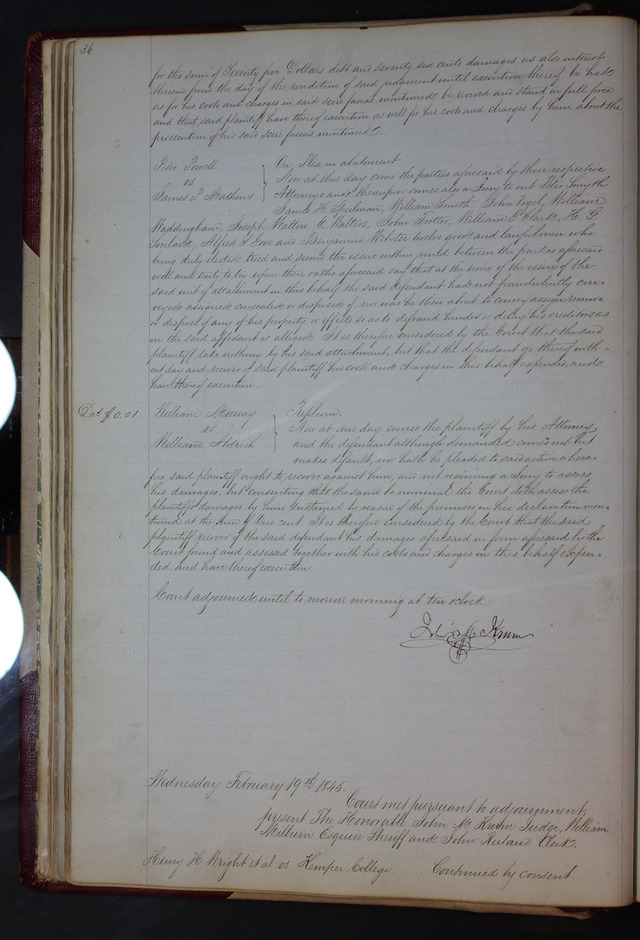 36
for the sum of Seventy five Dollars debt and seventy six cents damages as also interest
thereon from the day of the rendition of said judgment until execution thereof be had
as for his costs and charges in said scire facias mentioned be revived and stand in full force
and that said plaintiff have thereof execution as well for his costs and charges by them about the
prosecution of his said scire facias mentioned.
Powell On Plea in abatement
vs Now at this day come the parties aforesaid by their respective
James Mathews Attorneys and thereupon comes also a Jury to wit Peter Smyth
James H. Spulman, William Smith, John Vogel, William
Waddingham, Joseph Walton, C. Walters, John Trotter, William G Clark, H. G.
Soulard, Alfred and Benjamin Webster twelve good and lawful men who
being duly elected tried and sworn the issue within joined between the parties aforesaid
well and truly to try upon their oaths aforesaid say that at the time of the issue of the
said writ of attachment in this behalf the said defendant had not fraudulently con-
veyed assigned concealed or disposed of nor was he then about to convey assign remove
or dispose of any of his property or effects so as to defraud hinder or delay his creditors as
in the said affidavit is alleged. It is therefore considered by the Court that the said
plaintiff take nothing by his said attachment, but that the defendant go thereof with-
out day and recover of said plaintiff his costs and charges in this behalf expended, and
have thereof execution.
Dat $0.01 William Murray Replevin.
vs Now at this day comes the plaintiff by his Attorney
William Aldrich and the defendant although demanded comes not but
makes default, nor hath he pleaded to said action where-
fore said plaintiff ought to recover against him, and not requiring a Jury to assess
his damages, but consenting that the same be nominal the Court doth assess the
plaintiff's damages by him sustained by reason of the premises in his declaration men-
tioned at the sum of One cent It is therefore considered by the Court that the said
plaintiff recover of the said defendant his damages aforesaid in form aforesaid by the
Court found and assessed together with his costs and charges in this behalf expen-
ded and have thereof execution.
Court adjourned until to morrow morning at ten oclock
John M. Krum
Wednesday February 19th 1845.
Court met pursuant to adjournment,
present The Honorable John M Krum Judge, William
Milburn Esquire Sheriff and John Ruland Clerk.
Henry H Wright et al vs Kemper College. Continued by consent.